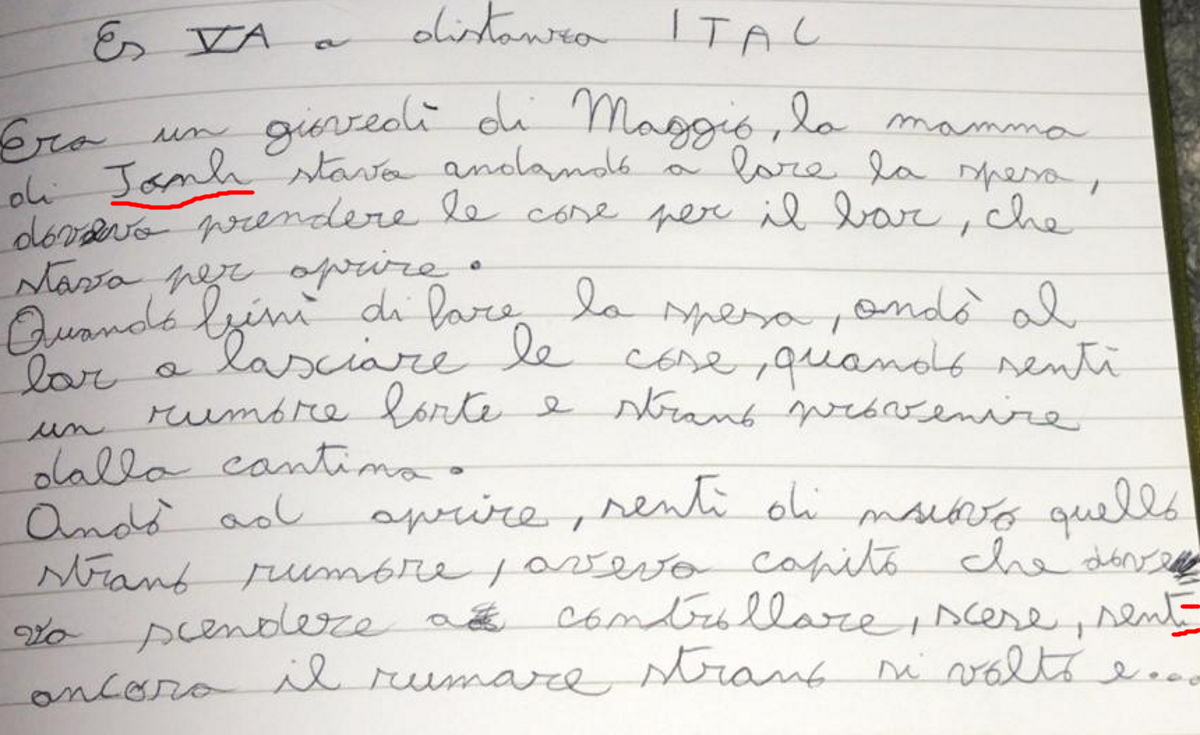 Es VA a distanza ITAL
Era un giovedì di Maggio, la mamma
di stava andando a fare la spesa,
doveva prendere le cose per il bar, che
stava per aprire.
Quando finì di fare la spesa, andò al
bar a lasciare le cose, quando senti
un rumore forte e strano provenire
dalla cantina.
Andò ad aprire, senti di nuovo quello
strano rumore, aveva capito che dove
va scendere a controllare, scese, senti
ancora il rumare strano si voltò e...